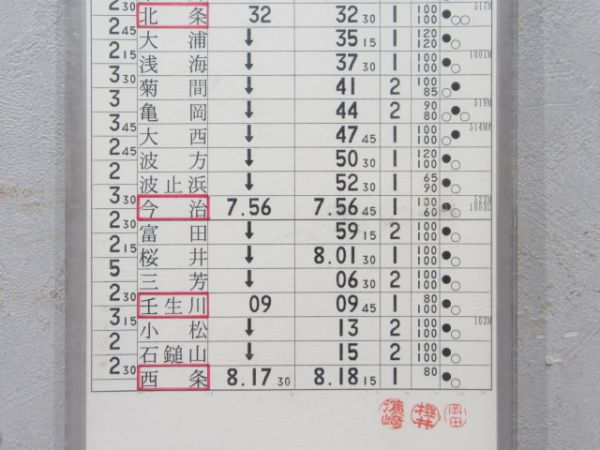 2 30
北条 32 32 30 1 100 100 517M
2 45
大浦 ↓ 35 15 1 120 120
2 15
浅海 ↓ 37 30 1 100 100 1001M
3 30
菊間 ↓ 41 2 100 85
3
亀岡 ↓ 44 2 90 80 519M
3 45
大西 ↓ 47 45 1 100 100 514M
2 45
波方 ↓ 50 30 1 120 100
2
波止浜 ↓ 52 30 1 65 90
3 30
今治 7.56 7.56 45 1 100 60
2 30
富田 ↓ 59 15 2 100 100
2 15
桜井 ↓ 8.01 30 1 100 100
5
三芳 ↓ 06 30 2 100 100
2 30
壬生川 09 09 45 1 80 100
3 15
小松 ↓ 13 2 100 100 103M
2
石鎚山 ↓ 15 2 100 100
2 30
西条 8.17 30 8.18 15 1 80
濱崎 櫻井 岡田